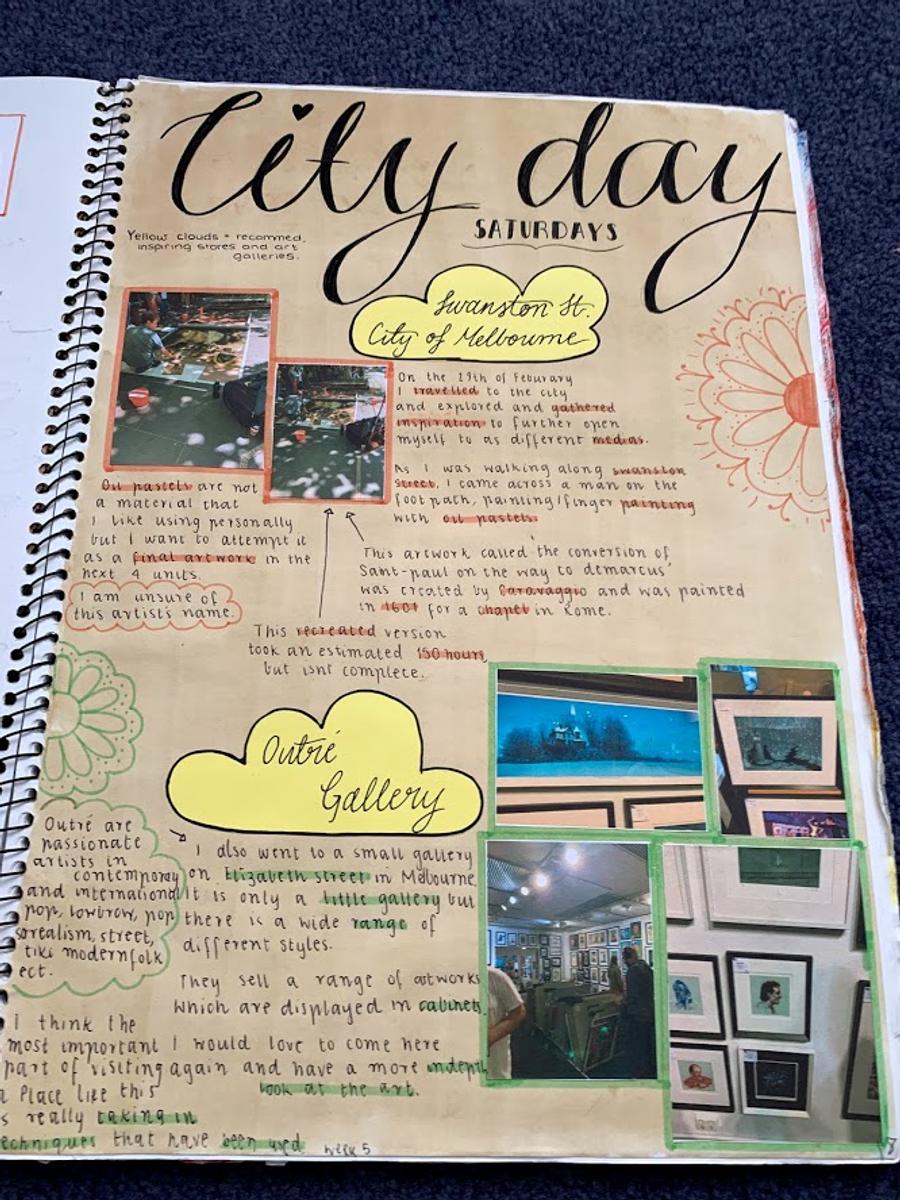 City day
SATURDAYS
Yellow clouds = recommed,
inspiring stores and art
galleries.
Swanston St.
City of Melbourne
On the 29th of Feburary
I travelled to the city
and explored and gathered
inspiration to further open
myself to as different medias.
As I was walking along swanston
street, I came across a man on the
footpath, painting/finger painting
with oil pastels.
Oil pastels are not
a material that
I like using personally
but I want to attempt it
as a final artwork in the
next 4 units.
I am unsure of
this artist's name.
This artwork called 'the conversion of
Saint-paul on the way to demarcus'
was created by Caravaggio and was painted
in 1601 for a chapel in Rome.
This recreated version
took an estimated 150 hours,
but isnt complete.
Outré
Gallery
Outré are
passionate
artists in
contemporay
and international
pop, lowbrow, pop
sorealism, street,
tiki modernfolk
ect.
I also went to a small gallery
on Elizabeth street in Melbourne.
It is only a little gallery but
there is a wide range of
different styles.
They sell a range of artworks
which are displayed in cabinets.
I would love to come here
again and have a more indepth
look at the art.
I think the
most important
part of visiting
a place like this
s really taking in
echniques that have been used
week 5